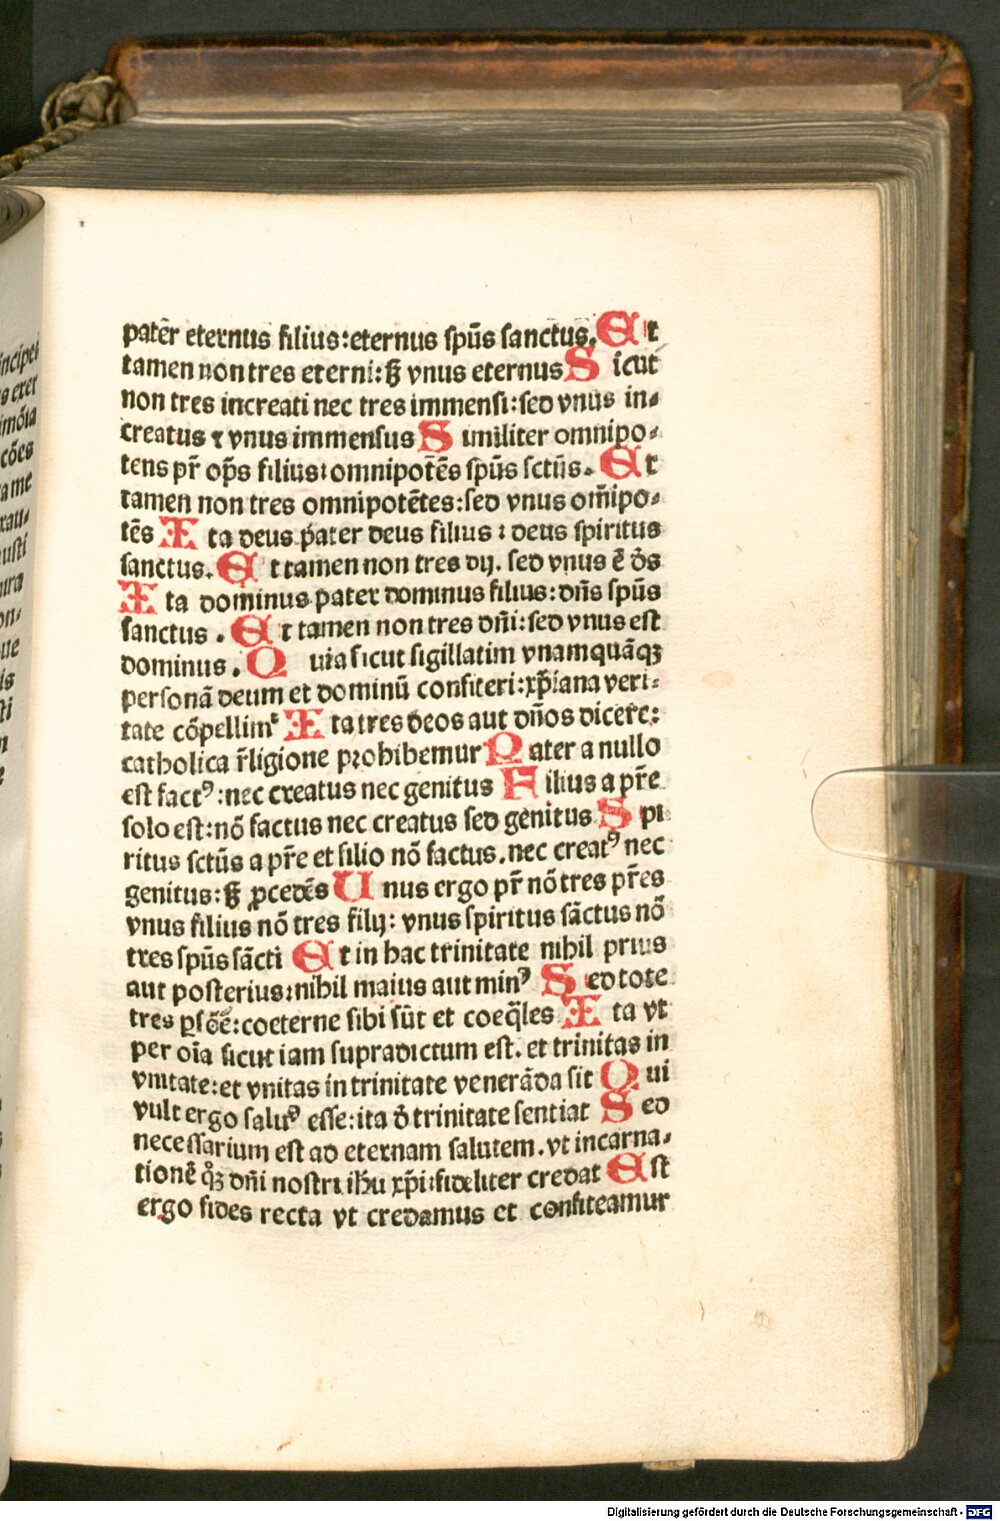 patēr eternus filius:eternus spūs sanctus.Et
tamen non tres eterni:ꝭ vnus eternus Sicut
non tres increati nec tres immensi:sed vnus in⸗
creatus ⁊ vnus immensus Similiter omnipo⸗
tens pr̄ op̄s filius:omnipotēs spūs sctūs. Et
tamen non tres omnipotētes:sed vnus om̄ipo⸗
tēs Ita deus pater deus filius : deus spiritus
sanctus. Et tamen non tres dij. sed vnus ē d̄s
Ita dominus pater dominus filius:dn̄s spūs
sanctus . Et tamen non tres dn̄i:sed vnus est
dominus. Quia sicut sigillatim vnamquāqꝫ
personā deum et dominū confiteri:xp̄iana veri⸗
tate cōpellimᷤ Ita tres deos aut dn̄os dicere:
catholica r̄ligione prohibemur Pater a nullo
est factꝰ:nec creatus nec genitus Filius a pr̄e
solo est:nō factus nec creatus sed genitus Spi
ritus sctūs a pr̄e et filio nō factus.nec creatꝰ nec
genitus:ꝭ ꝓcedēs Unus ergo pr̄ nō tres pr̄es
vnus filius nō tres filij: vnus spiritus sāctus nō
tres spūs sācti Et in hac trinitate nihil prius
aut posterius:nihil maius aut minꝰ Sed tote
tres ꝑsōe:coeterne sibi sūt et coeq̄les Ita vt
per oīa sicut iam supradictum est. et trinitas in
vnitate:et vnitas in trinitate venerāda sit Qui
vult ergo saluꝰ esse:ita d̄ trinitate sentiat Sed
necessarium est ad eternam salutem.vt incarna⸗
tionē qꝫ dn̄i nostri ih̄u xp̄i:fideliter credat Est
ergo fides recta vt credamus et confiteamur
Digitalisierung gefördert durch die Deutsche Forschungsgemeinschaft - DFG